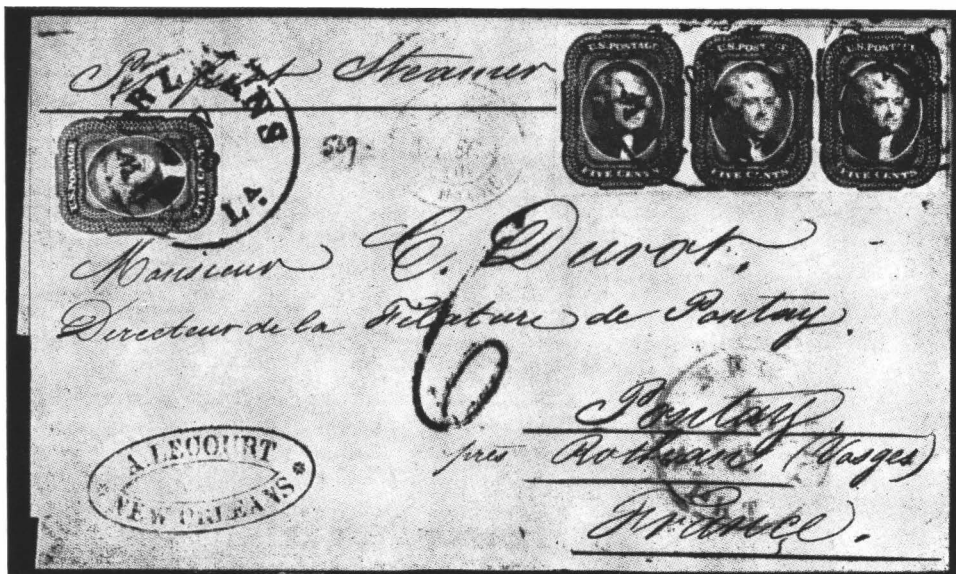 Steamer
U.S. POSTAGE
FIVE CENTS
U.S. POSTAGE
FIVE CENTS
U.S. POSTAGE
FIVE CENTS
U.S. POSTAGE
FIVE CENTS
RLEANS
LA
569-
Monsieur C. Durot.
Directeur de la Filature de Pontay.
6
Pontay.
près Rothau, (Vosges)
France.
A. LECOURT
NEW ORLEANS